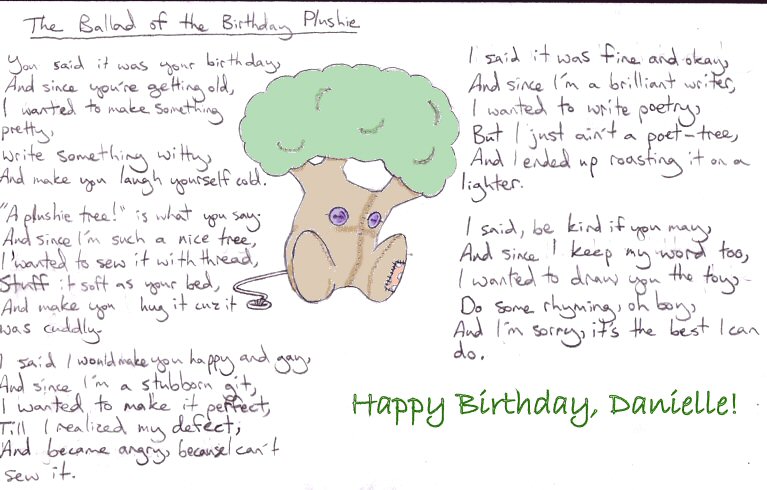 The Ballad of the Birthday Plushie
You said it was your birthday,
And since you're getting old,
I wanted to make something
pretty,
write something witty,
And make you laugh yourself cold.
"A plushie tree!" is what you say.
And since I'm such a nice tree,
I wanted to sew it with thread,
Stuff it soft as your bed,
And make you hug it cuz it
was cuddly.
I said I would make you happy and gay,
And since I'm a stubborn git,
I wanted to make it perfect,
Till I realized my defect;
And became angry, because I can't
sew it.
I said it was fine and okay,
And since I'm a brilliant writer,
I wanted to write poetry,
But I just ain't a poet-tree,
And I ended up roasting it on a
lighter.
I said, be kind if you may,
And since I keep my word too,
I wanted to draw you the toy,
Do some rhyming, oh boy,
And I'm sorry, it's the best I can
do.
Happy Birthday, Danielle!